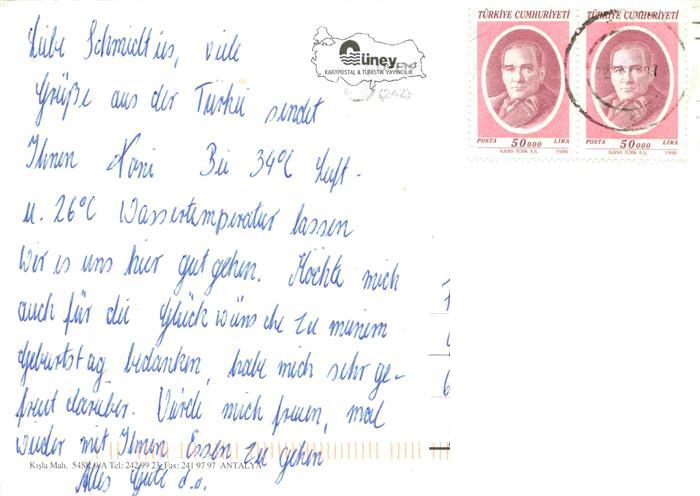 Liebe Schmidt'ies, viele
Grüße aus der Türkei sendet
Ihnen Bei 34°C Luft-
u. 26°C Wassertemperatur lassen
wir es uns hier gut gehen. Möchte mich
auch für die Glückwünsche zu meinem
Geburtstag bedanken, habe mich sehr ge-
freut darüber. Würde mich freuen, mal
wieder mit Ihnen Essen zu gehen
Alles Gute
Güney
KARTPOSTAL & TURİSTİK YAYINCILIK
(242)
TÜRKİYE CUMHURİYETİ
POSTA 50 000 LİRA
AJANS TÜRK A.Ş. 1996
TÜRKİYE CUMHURİYETİ
POSTA 50 000 LİRA
AJANS TÜRK A.Ş. 1996
Kışla Mah. Tel: 242 99 23 Fax: 241 97 97 ANTALYA